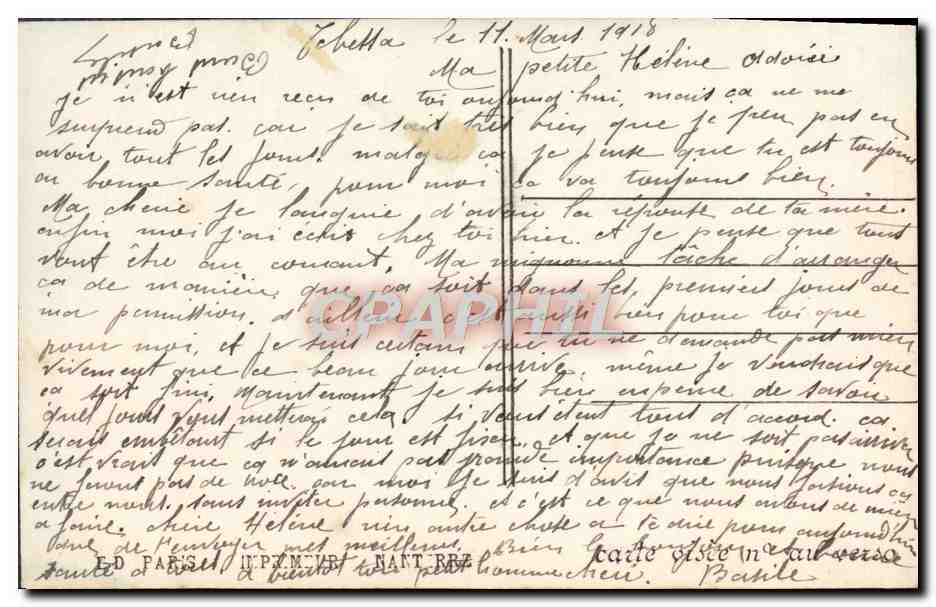 Tebessa le 11 Mars 1918
Ma petite Hélène adorée
Je n'est rien reçu de toi aujourd'hui, mais ça ne me
surprend pas. car je sait très bien que je peu pas en
avoir tout les jours. malgré ça je pense que tu est toujours
en bonne santé, pour moi ça va toujours bien.
Ma cherie je languie d'avoir la réponse de ta mère.
enfin moi j'ai écris chez toi hier. et je pense que tout
vont être au courant. Ma mignonne tâche d'arranger
ça de manière, que ça soit dans les premiers jours de
ma permission. d'ailleur c'est aussi bien pour toi que
pour moi, et je suis certain que tu ne demande pas mieu
vivement que ce beau jour arrive. même je voudrais que
ça soit fini, Maintenant je suis bien en peine de savoir
quel jours vous mettrai cela si vous etent tous d'accord. ça
serais embêtant si le jour est fixer, et que je ne soit pas arriver
c'est vrait que ça n'aurait pas grande importance puisque nous
ne ferons pas de noce. car moi je suis d'avis que nous fassions ça
entre nous. sans inviter personne. et c'est ce que nous avons de mieu
a faire. chère Hélène rien autre chose a te dire pour aujourd'hui
que de t'envoyer mes meilleurs
santé a tous. a bientôt ton petit homme cheri. Basile
ED PARIS
carte visée nº au verso
CPAPHIL